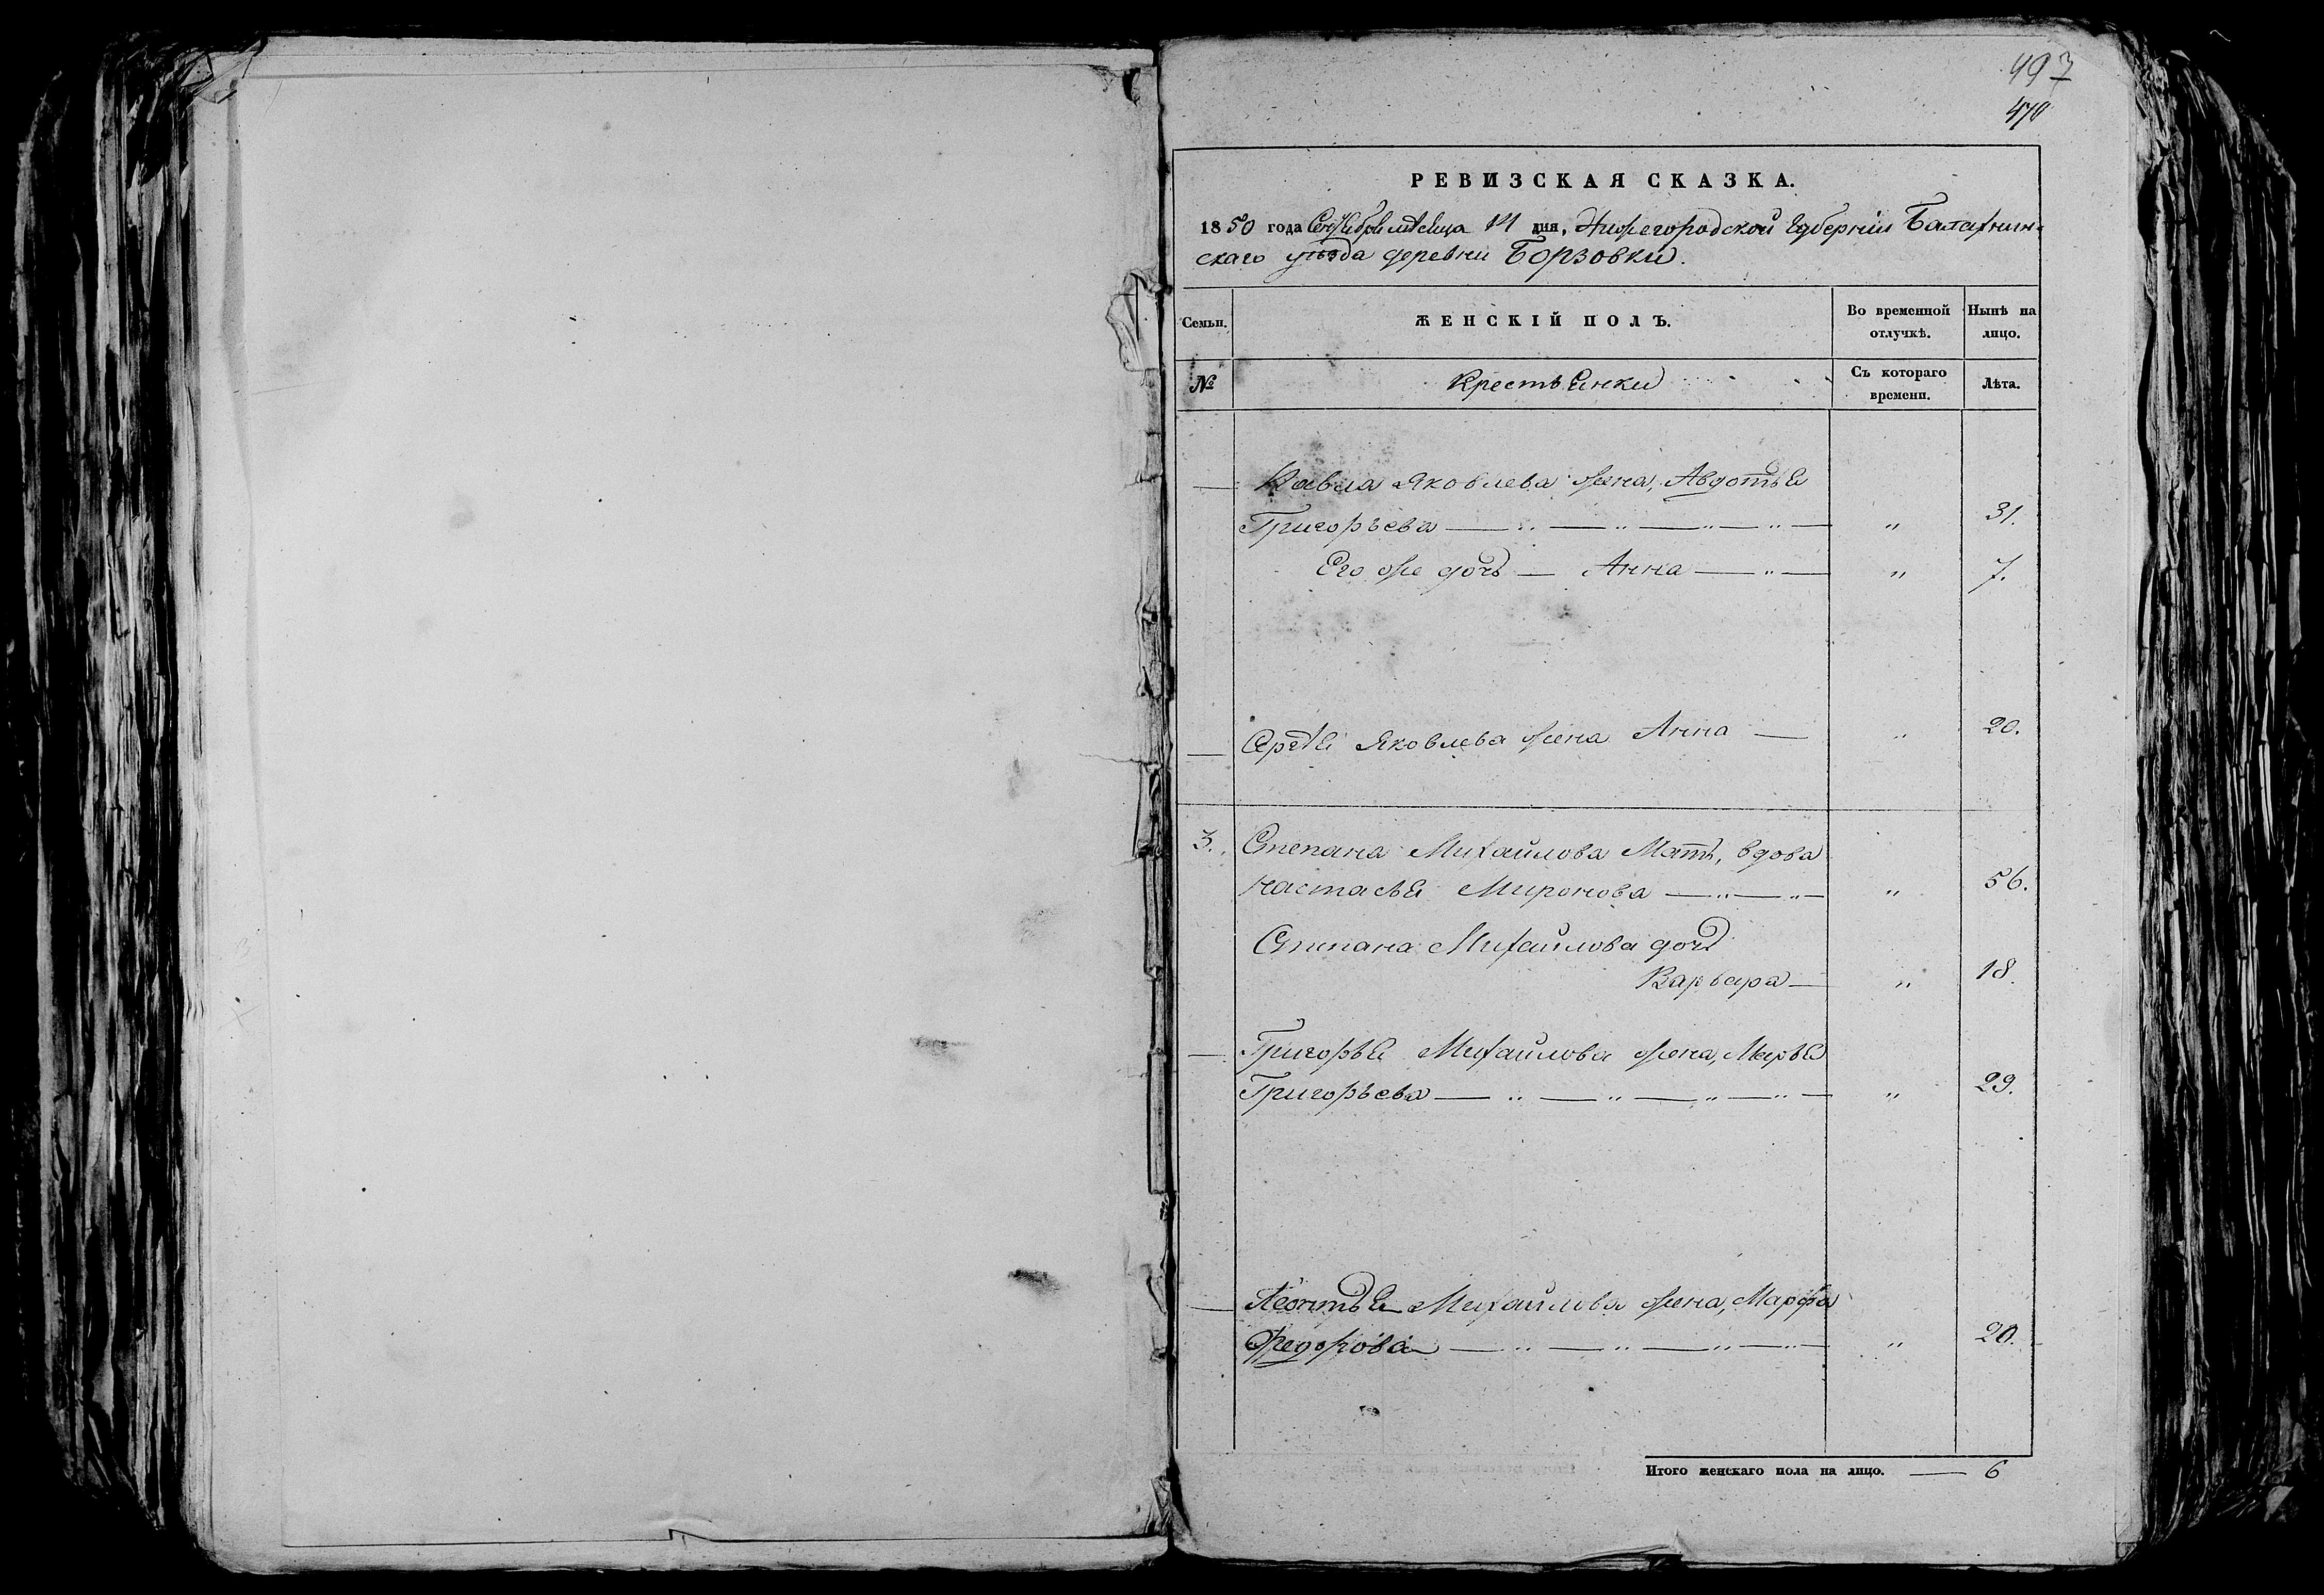 497
470
РЕВИЗСКАЯ СКАЗКА.
1850 года Октября месяца 14 дня, Нижегородской Губернии Балахнин-
скаго уѣзда деревни Борзовки.
Семьи.
ЖЕНСКІЙ ПОЛЪ.
Во временной отлучкѣ.
Нынѣ на лицо.
№
Крестьянки
Съ котораго времени.
Лѣта.
— Павла Яковлева жена, Авдотья
Григорьева — „ — „ — „ — „ — „ 31.
Его же дочь — Анна — „ — „ 7.
— Сергѣя Яковлева жена Анна — „ 20.
3. Степана Михайлова Мать, вдова
настасья Миронова — „ — „ — „ 56.
Степана Михайлова дочь
Варвара — „ 18.
— Григорья Михайлова жена, Марья
Григорьева — „ — „ — „ — „ — „ 29.
— Леонтья Михайлова жена, Марфа
Федорова — „ — „ — „ — „ — „ 20.
Итого женскаго пола на лицо. — 6